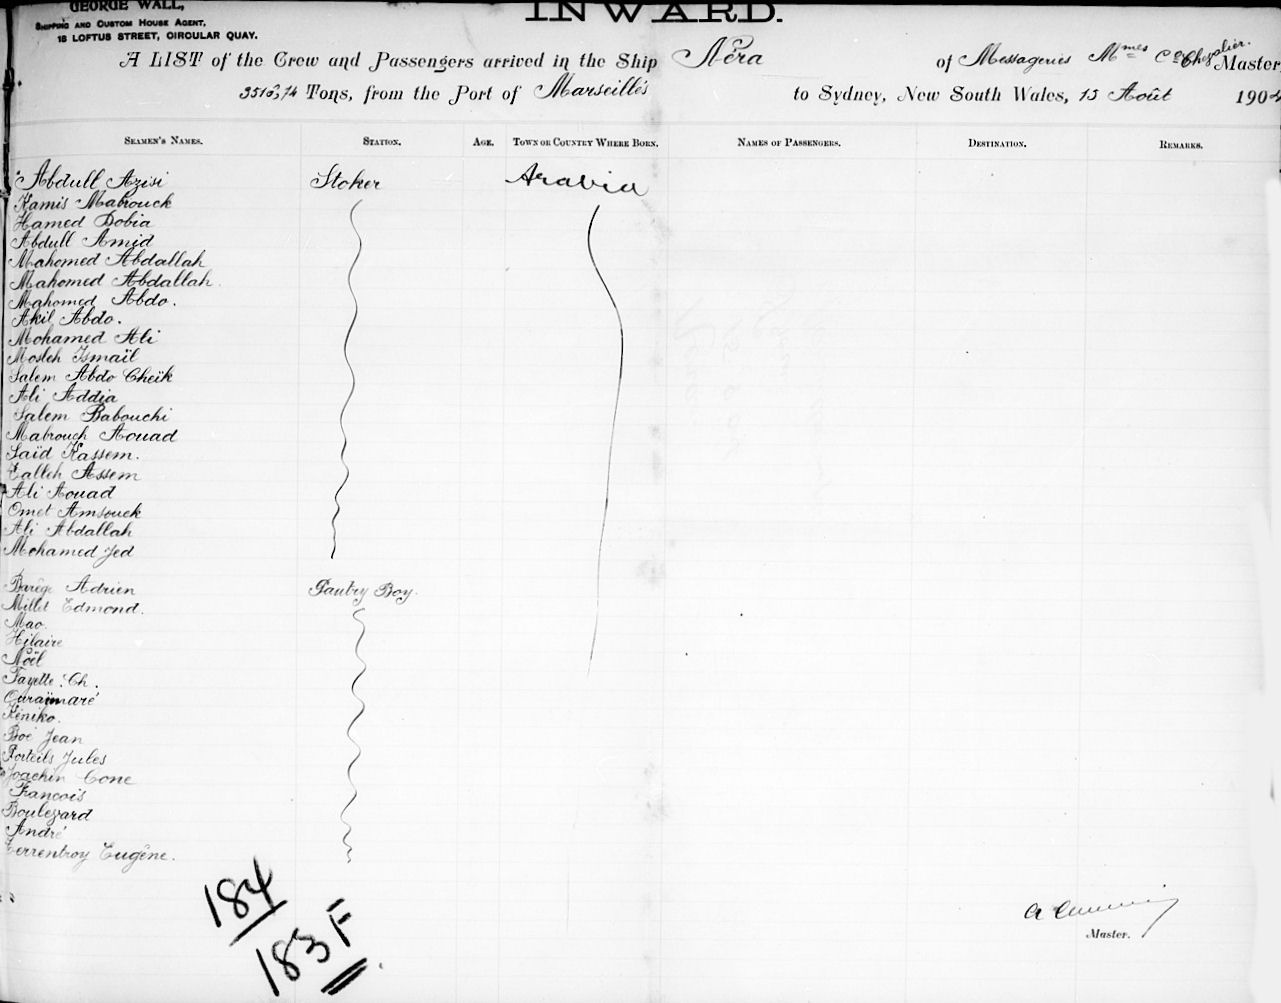 GEORGE WALL,
SHIPPING AND CUSTOM HOUSE AGENT,
18 LOFTUS STREET, CIRCULAR QUAY.
INWARD.
A LIST of the Crew and Passengers arrived in the Ship Néra of Messageries Mmes Co Chevalier. Master,
Tons, from the Port of Marseilles to Sydney, New South Wales, 15 Août 190
SEAMEN'S NAMES. STATION. AGE. TOWN OR COUNTRY WHERE BORN. NAMES OF PASSENGERS. DESTINATION. REMARKS.
Abdull Azisi Stoker Arabia
Kamis Mabrouck
Hamed Dobia
Abdull Amid
Mahomed Abdallah
Mahomed Abdallah.
Mahomed Abdo.
Akil Abdo.
Mohamed Ali
Mosleh Ismaïl
Salem Abdo Cheïk
Ali Addia
Salem Babouchi
Mabrouch Aouad
Saïd Kassem.
Assem
Ali Aouad
Omet Amsouek
Ali Abdallah
Mohamed Jed
Barège Adrien Pantry Boy.
Millet Edmond.
Mao.
Hilaire
Noël
Fayette. Ch.
Keniko.
Boé Jean
Porteils Jules
Joachin Cone
Francois
Boulegard
André
Eugène.
184
183 F
Master.